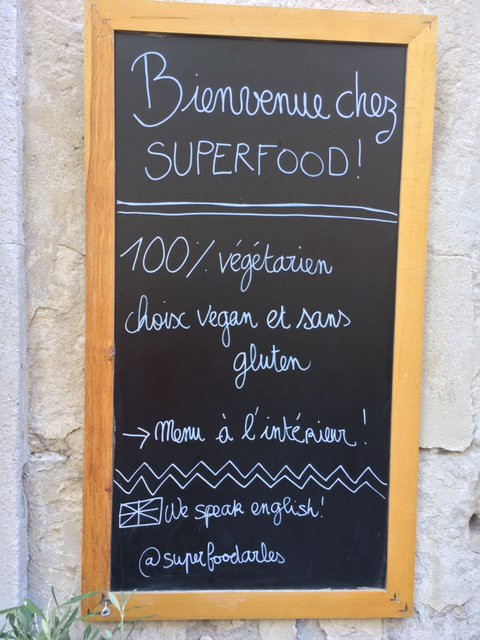 Bienvenue chez
SUPERFOOD!
100% végétarien
choix vegan et sans
gluten
→ Menu à l'intérieur!
We speak english!
@superfoodarles